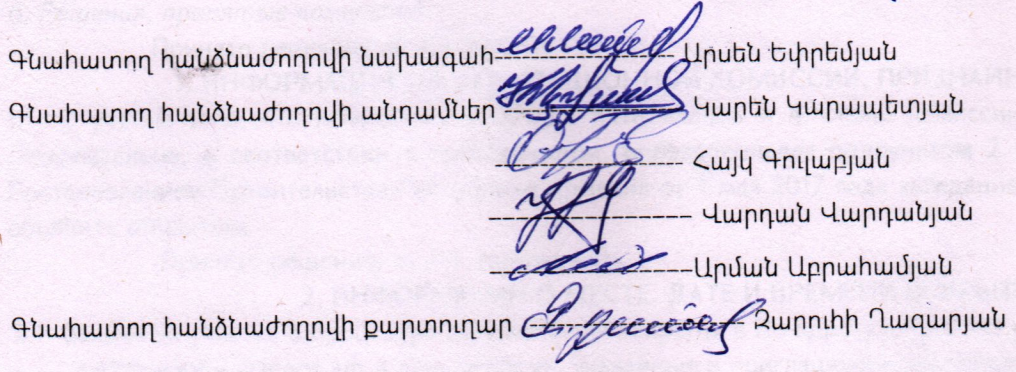 Գնահատող հանձնաժողովի նախագահ Արսեն Եփրեմյան
Գնահատող հանձնաժողովի անդամներ Կարեն Կարապետյան
Հայկ Գուլաբյան
Վարդան Վարդանյան
Արման Աբրահամյան
Գնահատող հանձնաժողովի քարտուղար Զարուհի Ղազարյան